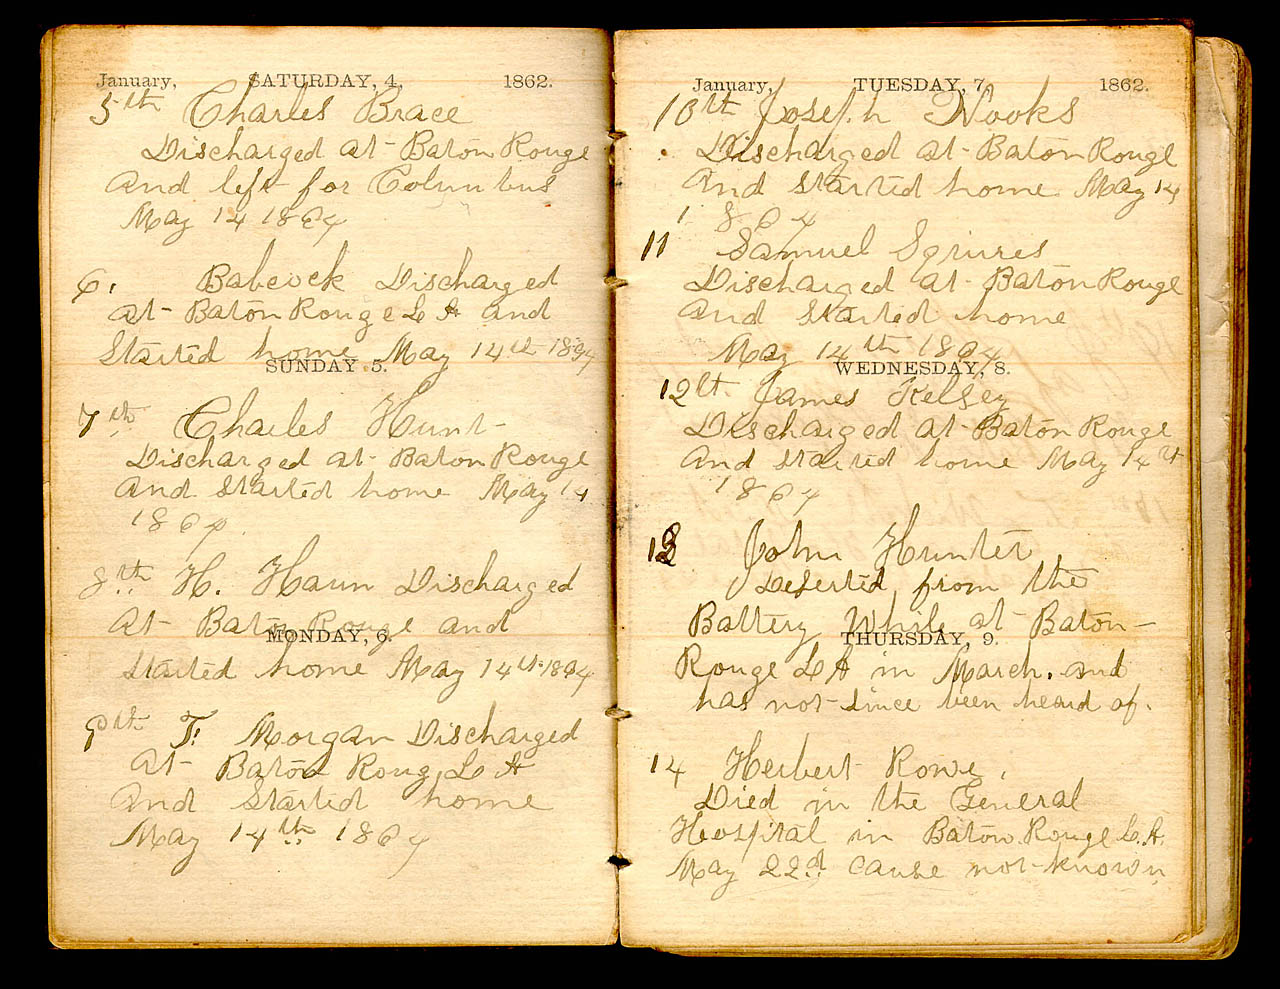 January, SATURDAY, 4, 1862.
5th Charles Brace
Discharged at Baton Rouge
and left for Columbus
May 14 1864
6. Babcock Discharged
at Baton Rouge L A and
Started home May 14th 1864
SUNDAY 5.
7th Charles Hunt
Discharged at Baton Rouge
and Started home May 14
1864
8th H. Haun Discharged
At Baton Rouge and
MONDAY, 6.
Started home May 14th 1864
9th T. Morgan Discharged
At Baton Roug, L A
And Started home
May 14th 1864
January, TUESDAY, 7, 1862.
10th Joseph Nooks
Discharged at Baton Rouge
and started home May 14
1864
11 Samuel Sqriures
Discharged at Baton Rouge
and Started home
May 14th 1864
WEDNESDAY, 8.
12th James Kelsey
Discharged at Baton Rouge
and started home May 14th
1864
13 John Hunter
Deserted from the
Battery While at Baton-
THURSDAY, 9.
Rouge L A in March. and
has not since been heard of.
14 Herbert Rowe,
Died in the General
Hospital in Baton Rouge L.A.
May 22d cause not known